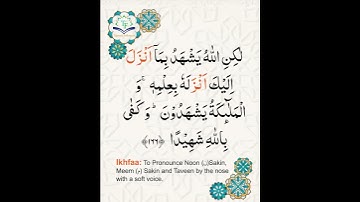 لٰكِنِ اللّٰهُ يَشْهَدُ بِمَاۤ اَنْزَلَ
اِلَيْكَ اَنْزَلَهٗ بِعِلْمِهٖ ۚ وَ
الْمَلٰٓئِكَةُ يَشْهَدُوْنَ ؕ وَ كَفٰى
بِاللّٰهِ شَهِيْدًا ﴿۱۶۶﴾
Ikhfaa: To Pronounce Noon (ن)Sakin,
Meem (م) Sakin and Taveen by the nose
with a soft voice.